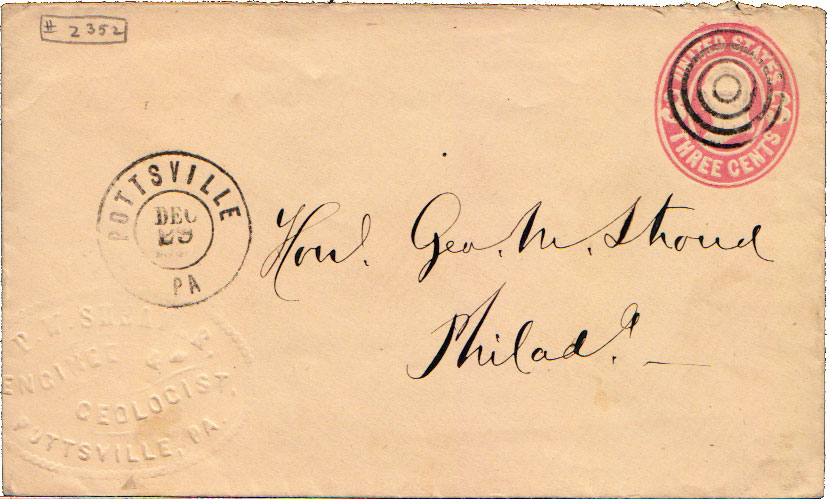 # 2352
UNITED STATES
THREE CENTS
POTTSVILLE
DEC
PA
Hon. Geo. M. Stroud
Philada.
P. W. SHEAFER
ENGINEER &
GEOLOGIST,
POTTSVILLE, PA.